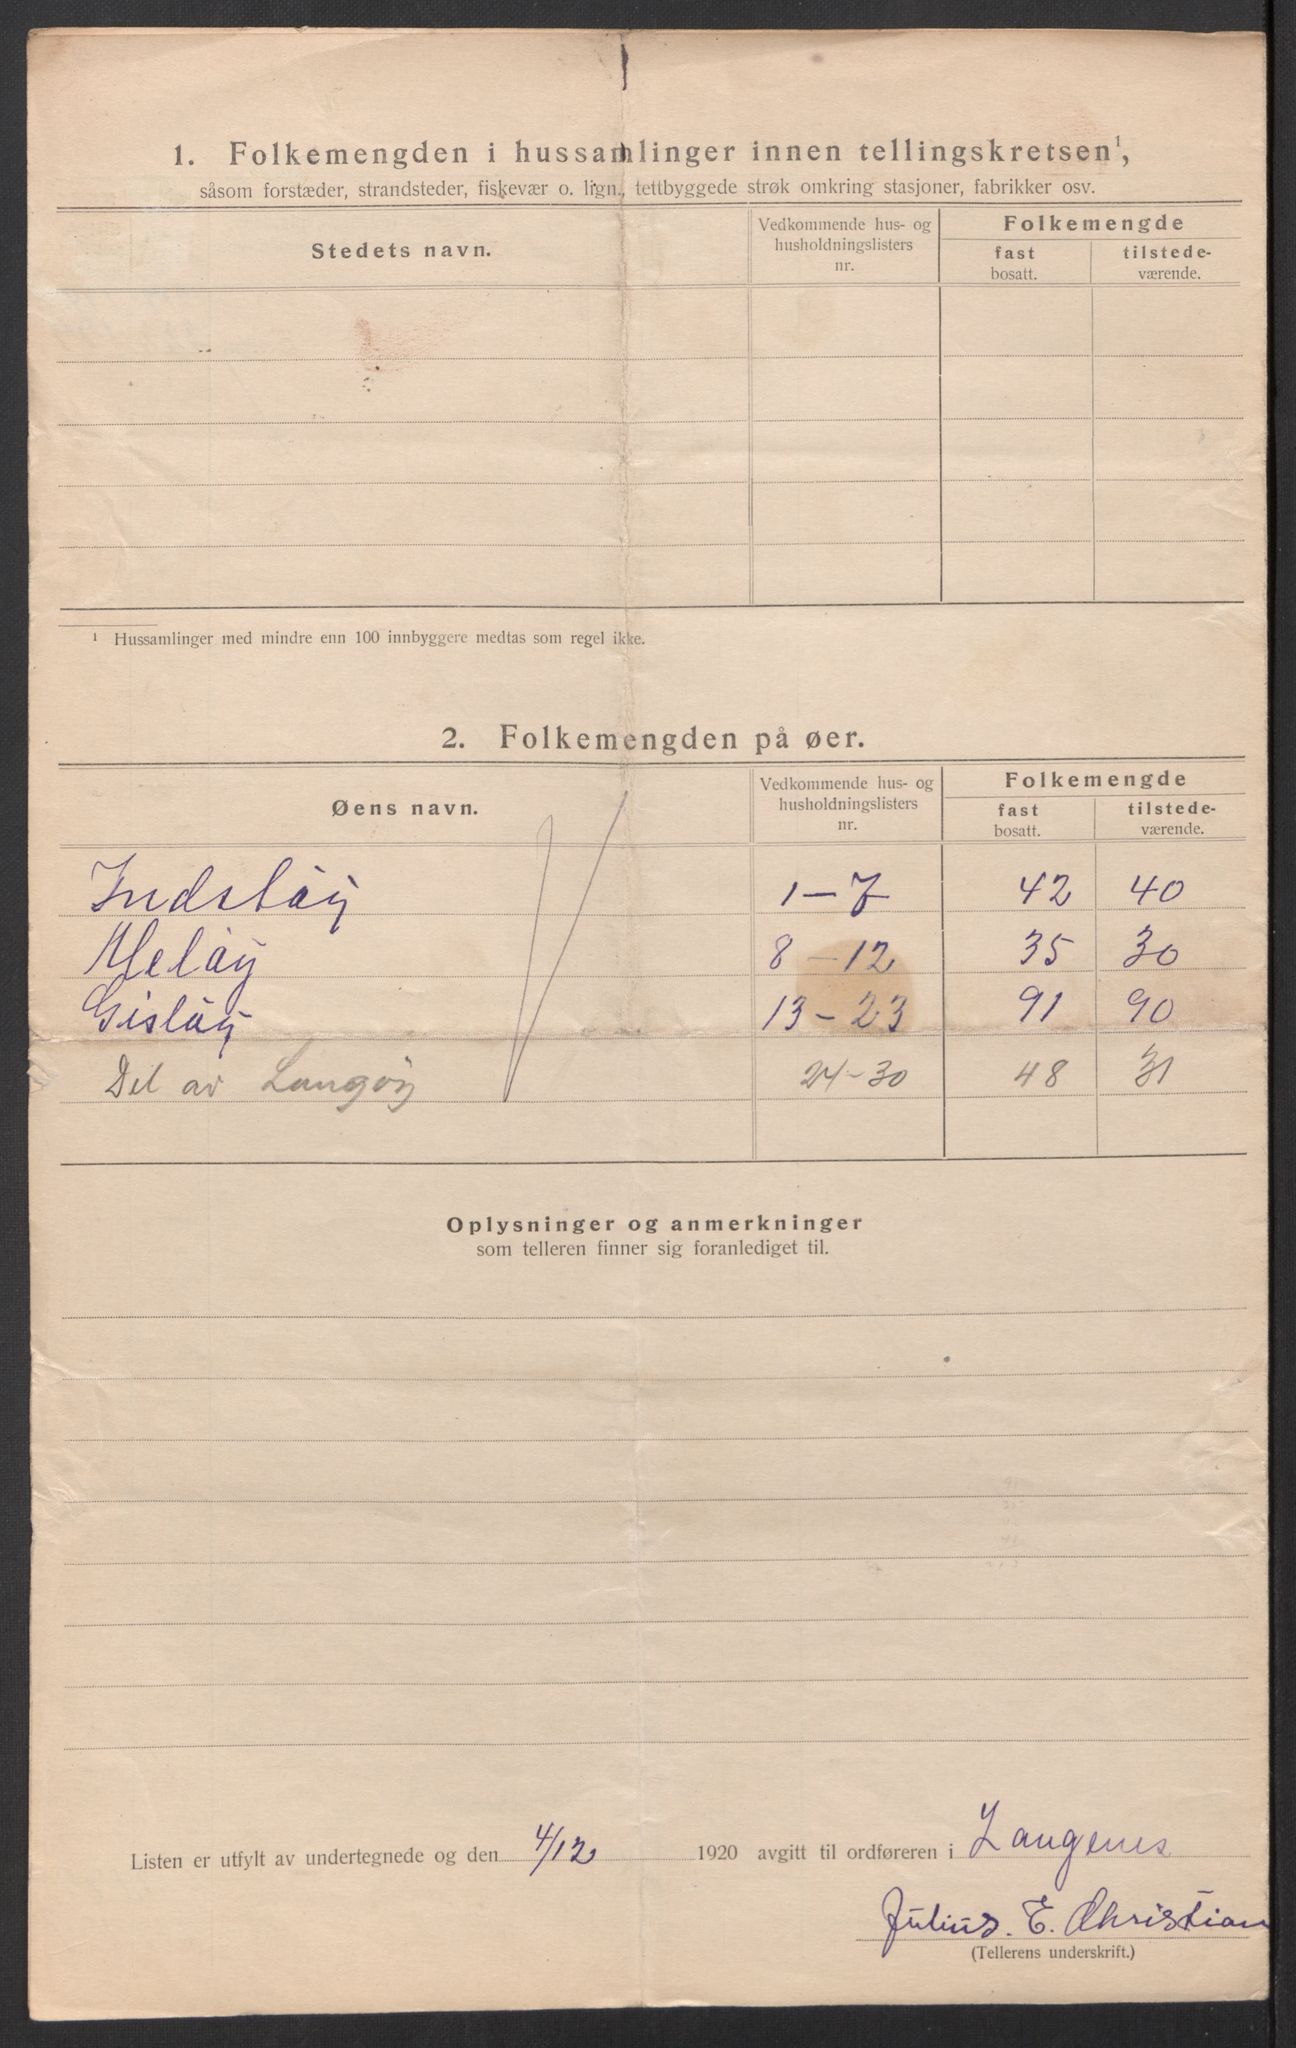 1. Folkemengden i hussamlinger innen tellingskretsen¹,
såsom forstæder, strandsteder, fiskevær o. lign., tettbyggede strøk omkring stasjoner, fabrikker osv.
Stedets navn.
Vedkommende hus- og husholdningslisters nr.
Folkemengde
fast bosatt.
tilstede-værende.
¹ Hussamlinger med mindre enn 100 innbyggere medtas som regel ikke.
2. Folkemengden på øer.
Øens navn.
Vedkommende hus- og husholdningslisters nr.
Folkemengde
fast bosatt.
tilstede-værende.
1-7 42 40
8-12 35 30
Gisløy 13-23 91 90
Del av Langøy 24-30 48 31
Oplysninger og anmerkninger
som telleren finner sig foranlediget til.
Listen er utfylt av undertegnede og den 4/12 1920 avgitt til ordføreren i Langenes
Julius. E. Christian
(Tellerens underskrift.)